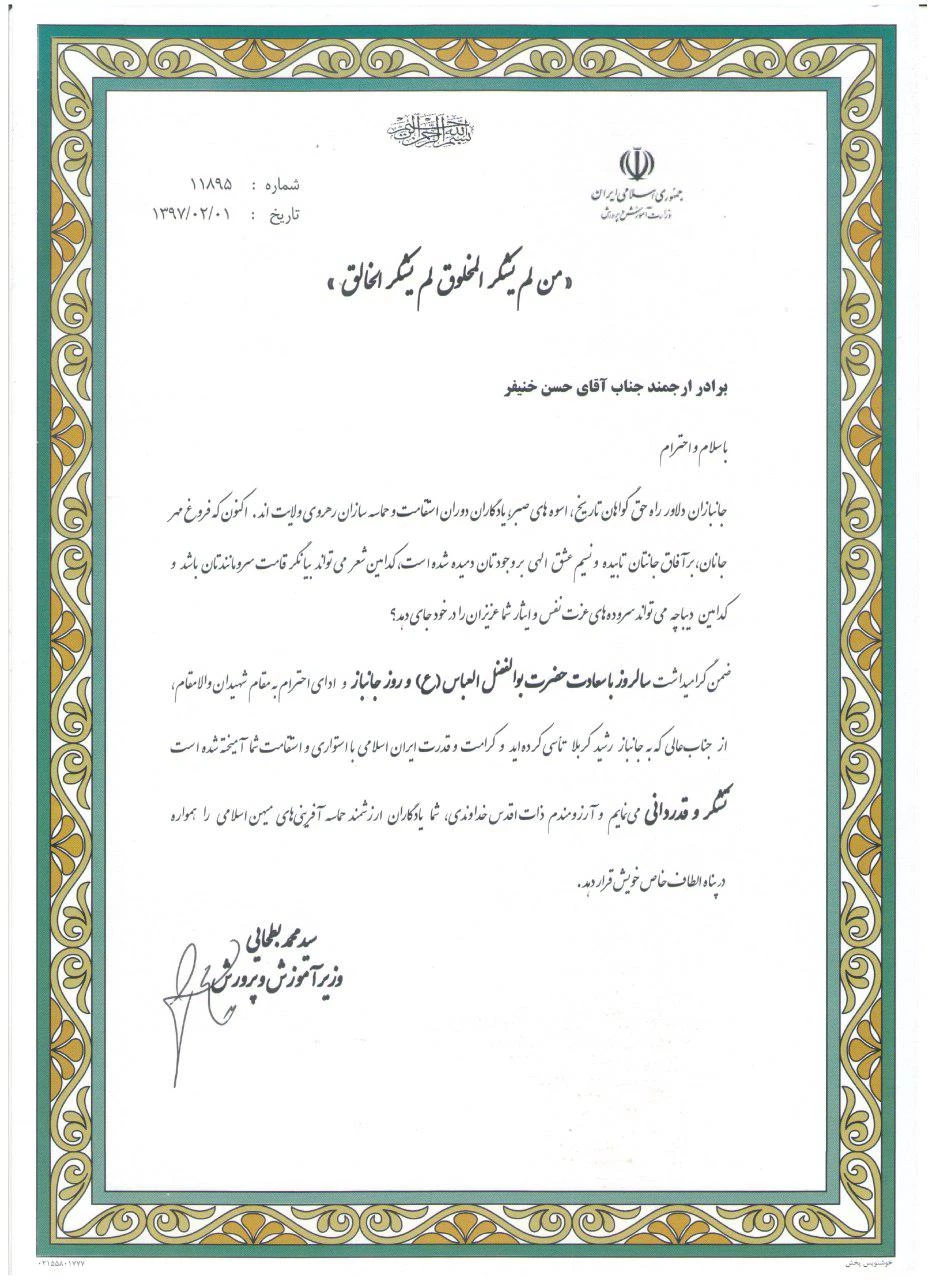 بسم الله الرحمن الرحیم
جمهوری اسلامی ایران
وزارت آموزش و پرورش
شماره : ۱۱۸۹۵
تاریخ : ۱۳۹۷/۰۲/۰۱
«من لم یشکر المخلوق لم یشکر الخالق»
برادر ارجمند جناب آقای حسن خنیفر
باسلام و احترام
جانبازان دلاور راه حق گواهان تاریخ، اسوه های صبر، یادگاران دوران استقامت و حماسه سازان رهروی ولایت اند. اکنون که فروغ مهر
جانان، بر آفاق جانتان تابیده و نسیم عشق الهی بر وجودتان دمیده شده است، کدامین شعر می تواند بیانگر قامت سرومانندتان باشد و
کدامین دیباچه می تواند سروده های عزت نفس و ایثار شما عزیزان را در خود جای دهد؟
ضمن گرامیداشت سالروز باسعادت حضرت بوالفضل العباس (ع) و روز جانباز و ادای احترام به مقام شهیدان والامقام،
از جناب عالی که به جانباز رشید کربلا تاسی کرده اید و کرامت و قدرت ایران اسلامی با استواری و استقامت شما آمیخته شده است
تشکر و قدردانی می نمایم و آرزومندم ذات اقدس خداوندی، شما یادگاران ارزشمند حماسه آفرینی های میهن اسلامی را همواره
در پناه الطاف خاص خویش قرار دهد.
سید محمد بطحایی
وزیر آموزش و پرورش
خوشنویس پخش
۰۲۱۵۵۸۰۱۷۷۷